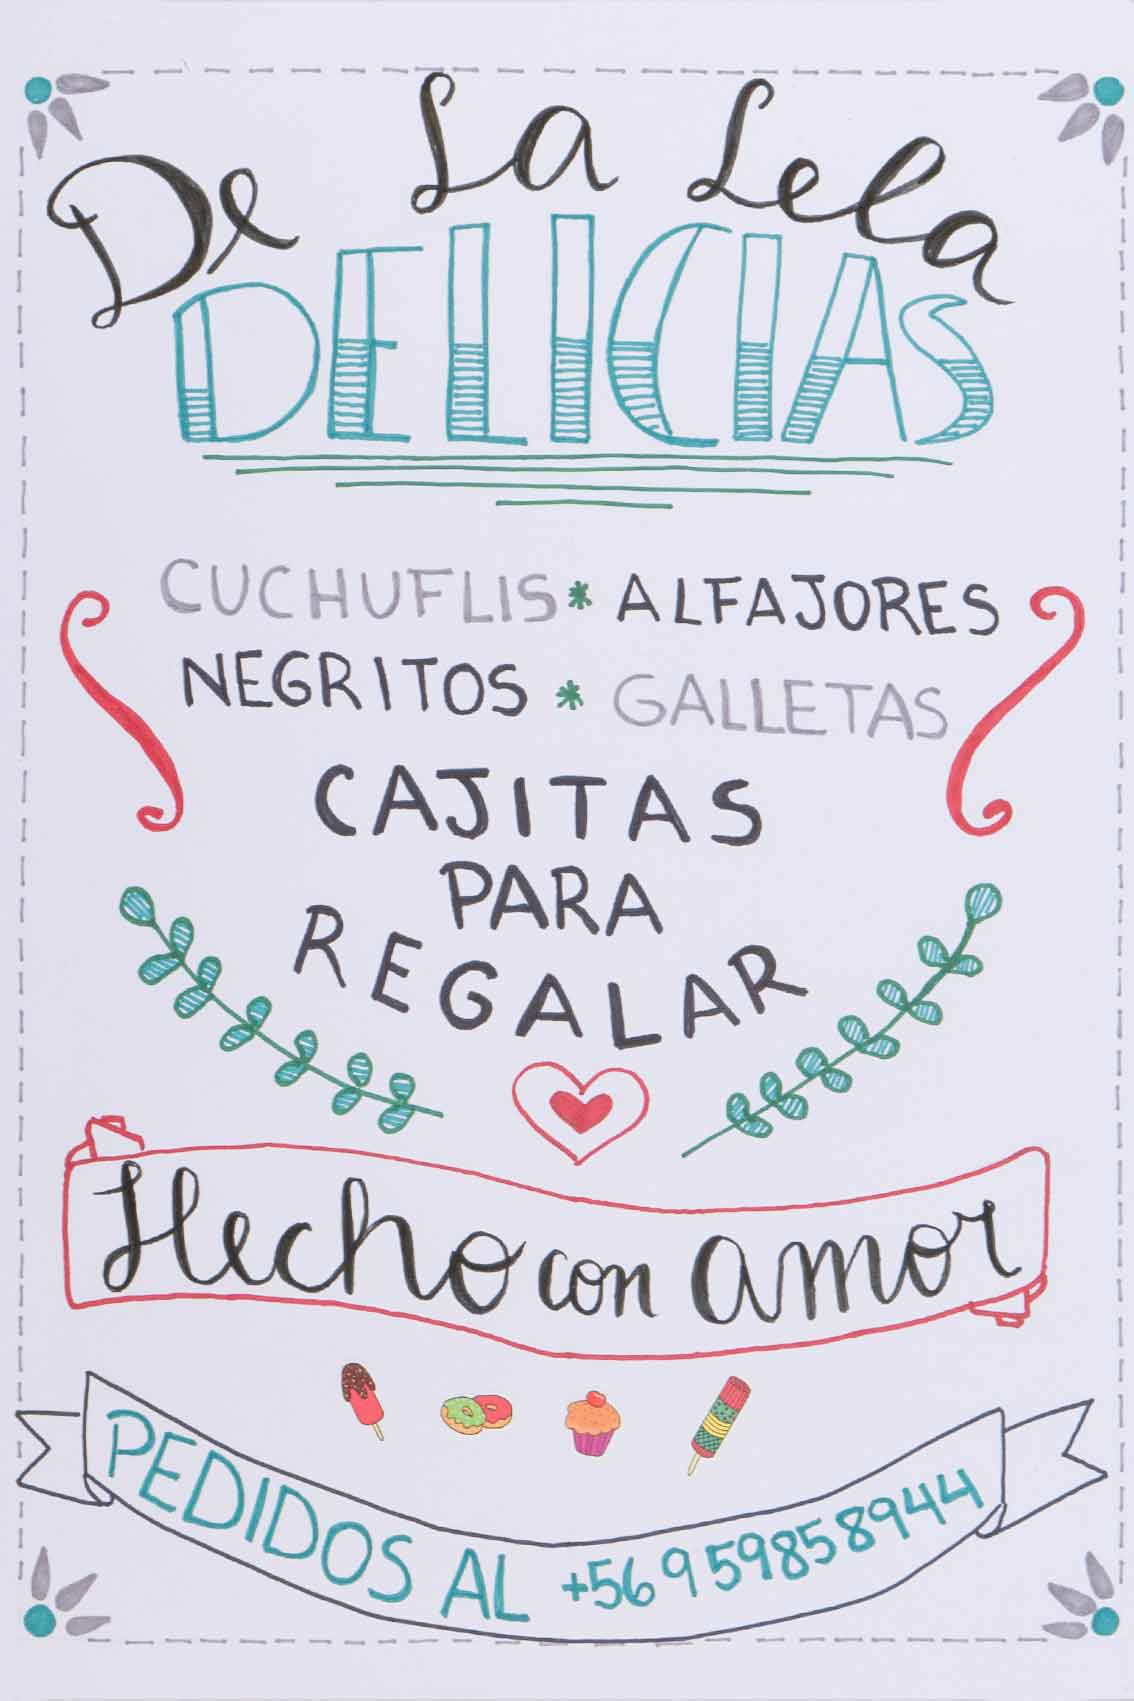 De La Lela
DELICIAS
CUCHUFLIS * ALFAJORES
NEGRITOS * GALLETAS
CAJITAS
PARA
REGALAR
Hecho con amor
PEDIDOS AL +56959858944